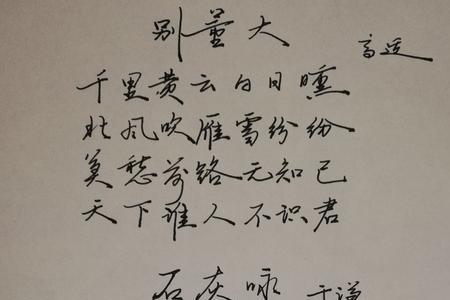 别董大
高适
千里黄云白日曛
北风吹雁雪纷纷
莫愁前路无知己
天下谁人不识君
石灰咏 于谦